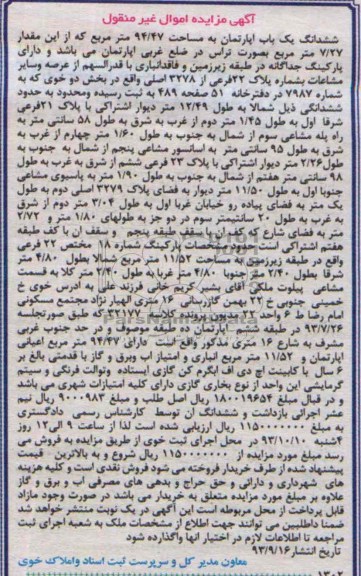 آگهی مزایده اموال غیر منقول
ششدانگ یک باب اپارتمان به مساحت ۹۴/۴۷ متر مربع که از این مقدار
۷/۲۷ متر مربع بصورت تراس در ضلع غربی اپارتمان می باشد و دارای
پارکینگ جداگانه در طبقه زیرزمین و فاقدانباری با قدرالسهم از عرصه وسایر
مشاعات بشماره پلاک ۲۲فرعی از ۳۲۷۸ اصلی واقع در بخش دو خوی که به
شماره ۷۹۸۷ در دفترخانه ۵۱ صفحه ۴۸۹ به ثبت رسیده ومحدود به حدود
ششدانگی ذیل شمالا به طول ۱۲/۴۹ متر دیوار اشتراکی با پلاک ۲۱فرعی
شرقا اول به طول ۱/۴۵ متر دوم از غرب به شرق به طول ۵۸ سانتی متر به
راه پله مشاعی سوم از شمال به جنوب به طول ۱/۶۰ متر چهارم از غرب به
شرق به طول ۹۵ سانتی متر به اسانسور مشاعی پنجم از شمال به جنوب به
طول۲/۲۶ متر دیوار اشتراکی با پلاک ۲۳ فرعی ششم از شرق به غرب به طول
۹۸ سانتی متر هفتم از شمال به جنوب به طول ۱/۹۰ متر به پاسیوی مشاعی
جنوبا اول به طول ۱۱/۵۰ متر دیوار به فضای پلاک ۳۲۷۹ اصلی دوم به طول
یک متر به فضای پیاده رو خیابان غربا اول به طول ۳/۰۴ متر دوم از شرق
به غرب به طول ۲۰ سانتیمتر سوم در دو جز به طولهای ۱/۸۰ متر و ۲/۷۲
متر به فضای شارع که کف ان با سقف طبقه پنجم و سقف ان با کف طبقه
هفتم اشتراکی است حدود و مشخصات پارکینگ شماره ۱۸ مختص ۲۲ فرعی
واقع در طبقه زیرزمین به مساحت ۱۱/۵۲ متر مربع شمالا بطول ۴/۸۰ متر
شرقا بطول ۲/۴۰ متر جنوبا ۴/۸۰ متر غربا به طول ۲/۴۰ متر کلا به قسمت
مشاعی پیلوت ملکی آقای بشیر کریم خانی فرزند علی به ادرس خوی خ
خمینی جنوبی خ ۲۲ بهمن گازرسانی ۱۶ متری الهیار نژاد مجتمع مسکونی
امام رضا ط ۶ واحد ۲۲ مدیون پرونده کلاسه ۲۲۱۷۷ که طبق صورتجلسه
۹۳/۷/۲۶ در طبقه ششم اپارتمان در طبقه موصوف و در حد جنوب غربی
مشرف به شارع ۱۶ متری مذکور واقع است دارای ۹۴/۴۷ متر مربع اعیانی
اپارتمان و ۱۱/۵۲ متر مربع انباری و امتیاز اب وبرق و گاز با قدمتی بالغ بر
۶ سال با کابینت اچ دی اف ابگرم کن گازی ایستاده وتوالت فرنگی و سیتم
گرمایشی این واحد از نوع بخاری گازی دارای کلیه امتیازات شهری می باشد
و در قبال مبلغ ۱۸۰۰۱۹۶۵۴ ریال اصل طلب و مبلغ ۹۰۰۰۹۸۳ ریال نیم
عشر اجرائی بازداشت و ششدانگ ان توسط کارشناس رسمی دادگستری
به مبلغ ۱۱۵۰۰۰۰۰۰۰ ریال ارزیابی شده است لذا از ساعت ۹ الی۱۲ روز
۴شنبه ۹۳/۱۰/۱۰ در محل اجرای ثبت خوی از طریق مزایده به فروش می
رسد مبلغ مورد مزایده از ۱۱۵۰۰۰۰۰۰۰ ریال شروع و به بالاترین قیمت
پیشنهاد شده از طرف خریدار فروخته می شود فروش نقدی است و کلیه هزینه
های شهرداری و دارائی و حق حراج و بدهی های مصرفی اب و برق و گاز
علاوه بر مبلغ مورد مزایده متعلق به خریدار می باشد در صورت وجود مازاد
قابل پرداخت از محل مربوطه است این آگهی در یک نوبت منتشر خواهد شد
ضمنا داطلبین می توانند جهت اطلاع از مشخصات ملک به شعبه اجرای ثبت
مراجعه تا اطلاعات لازم در اختیار انها واگذارده شود
تاریخ انتشار۹۳/۹/۱۶
معاون مدیر کل و سرپرست ثبت اسناد واملاک خوی
۱۳۰۲